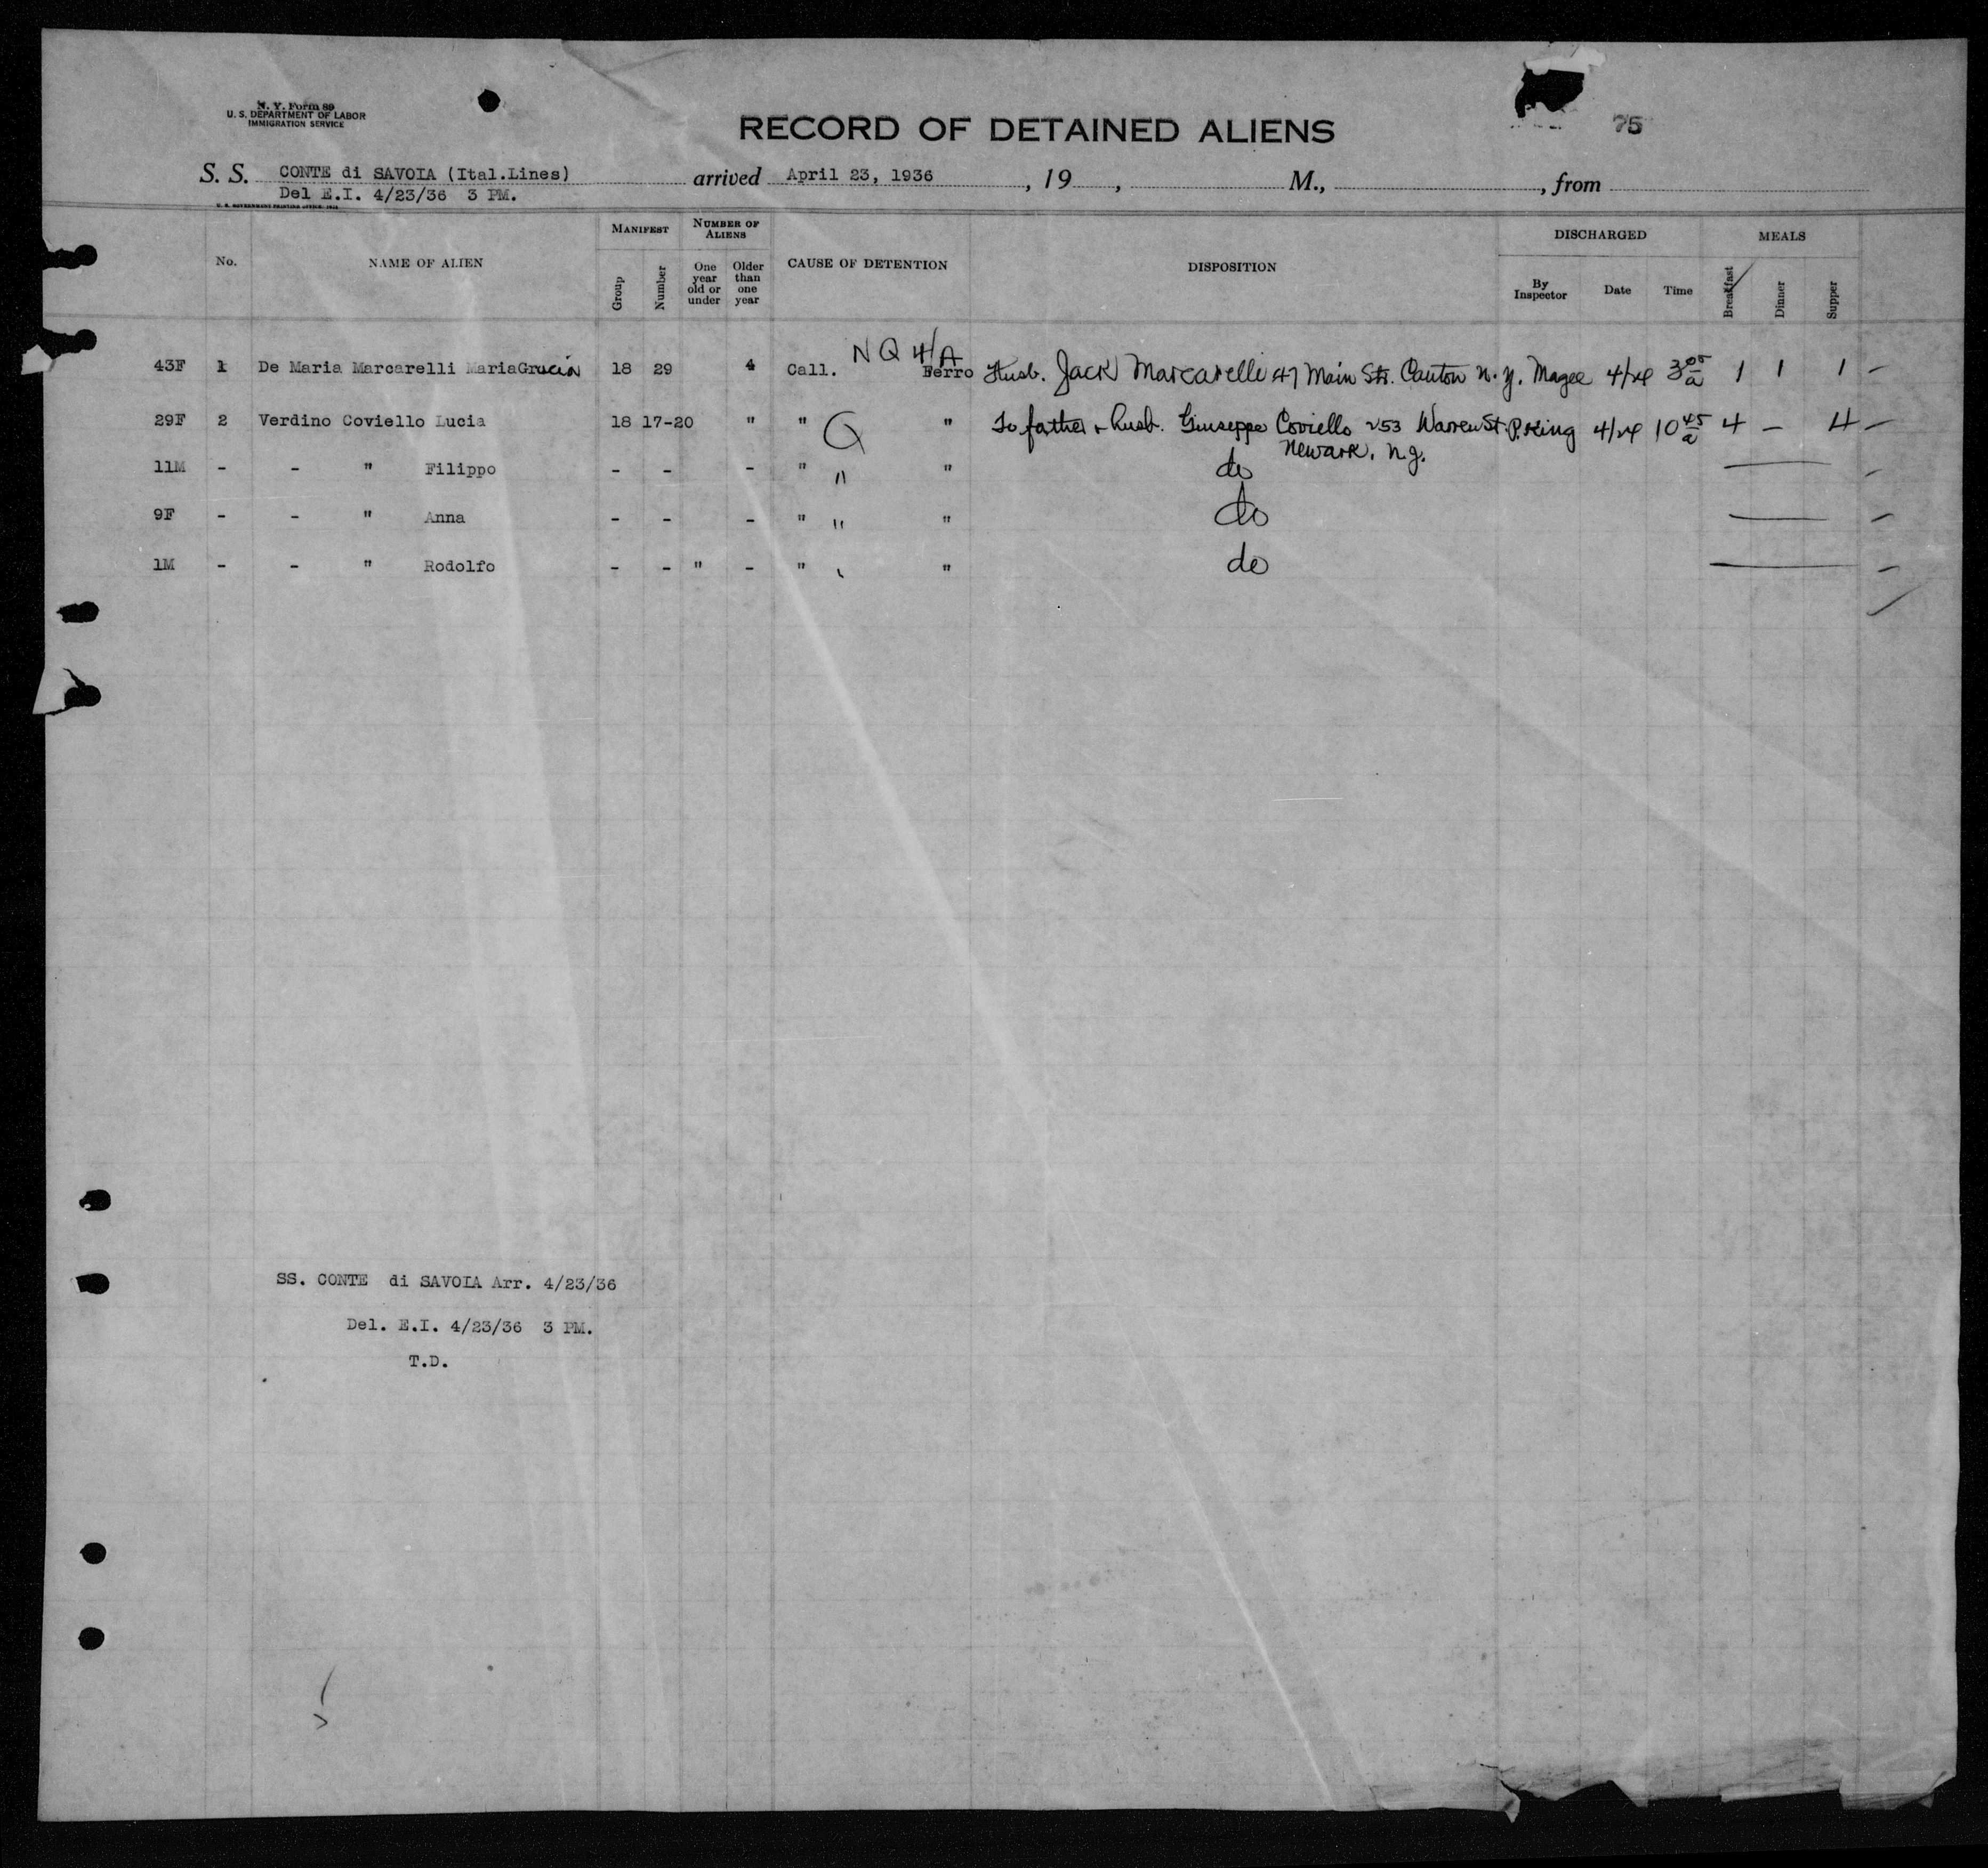 N. Y. Form 89
U. S. DEPARTMENT OF LABOR
IMMIGRATION SERVICE
RECORD OF DETAINED ALIENS
75
S. S. CONTE di SAVOIA (Ital.Lines) arrived April 23, 1936 , 19 , M., , from
Del E.I. 4/23/36 3 PM.
No. NAME OF ALIEN MANIFEST Group Number NUMBER OF ALIENS One year old or under Older than one year CAUSE OF DETENTION DISPOSITION DISCHARGED By Inspector Date Time MEALS Breakfast Dinner Supper
43F 1 De Maria Marcarelli MariaGracia 18 29 4 Call. N Q 4/A Ferro Husb. Jack Marcarelli 47 Main Str. Canton N.Y. Magee 4/24 3 05 a 1 1 1 -
29F 2 Verdino Coviello Lucia 18 17-20 " " Q " To father + husb. Giuseppe Coviello 253 Warren St. P. King 4/24 10 45 a 4 - 4 -
Newark, N.J.
11M - - " Filippo - - - " " " do -
9F - - " Anna - - - " " " do -
1M - - " Rodolfo - - " - " " do -
SS. CONTE di SAVOIA Arr. 4/23/36
Del. E.I. 4/23/36 3 PM.
T.D.